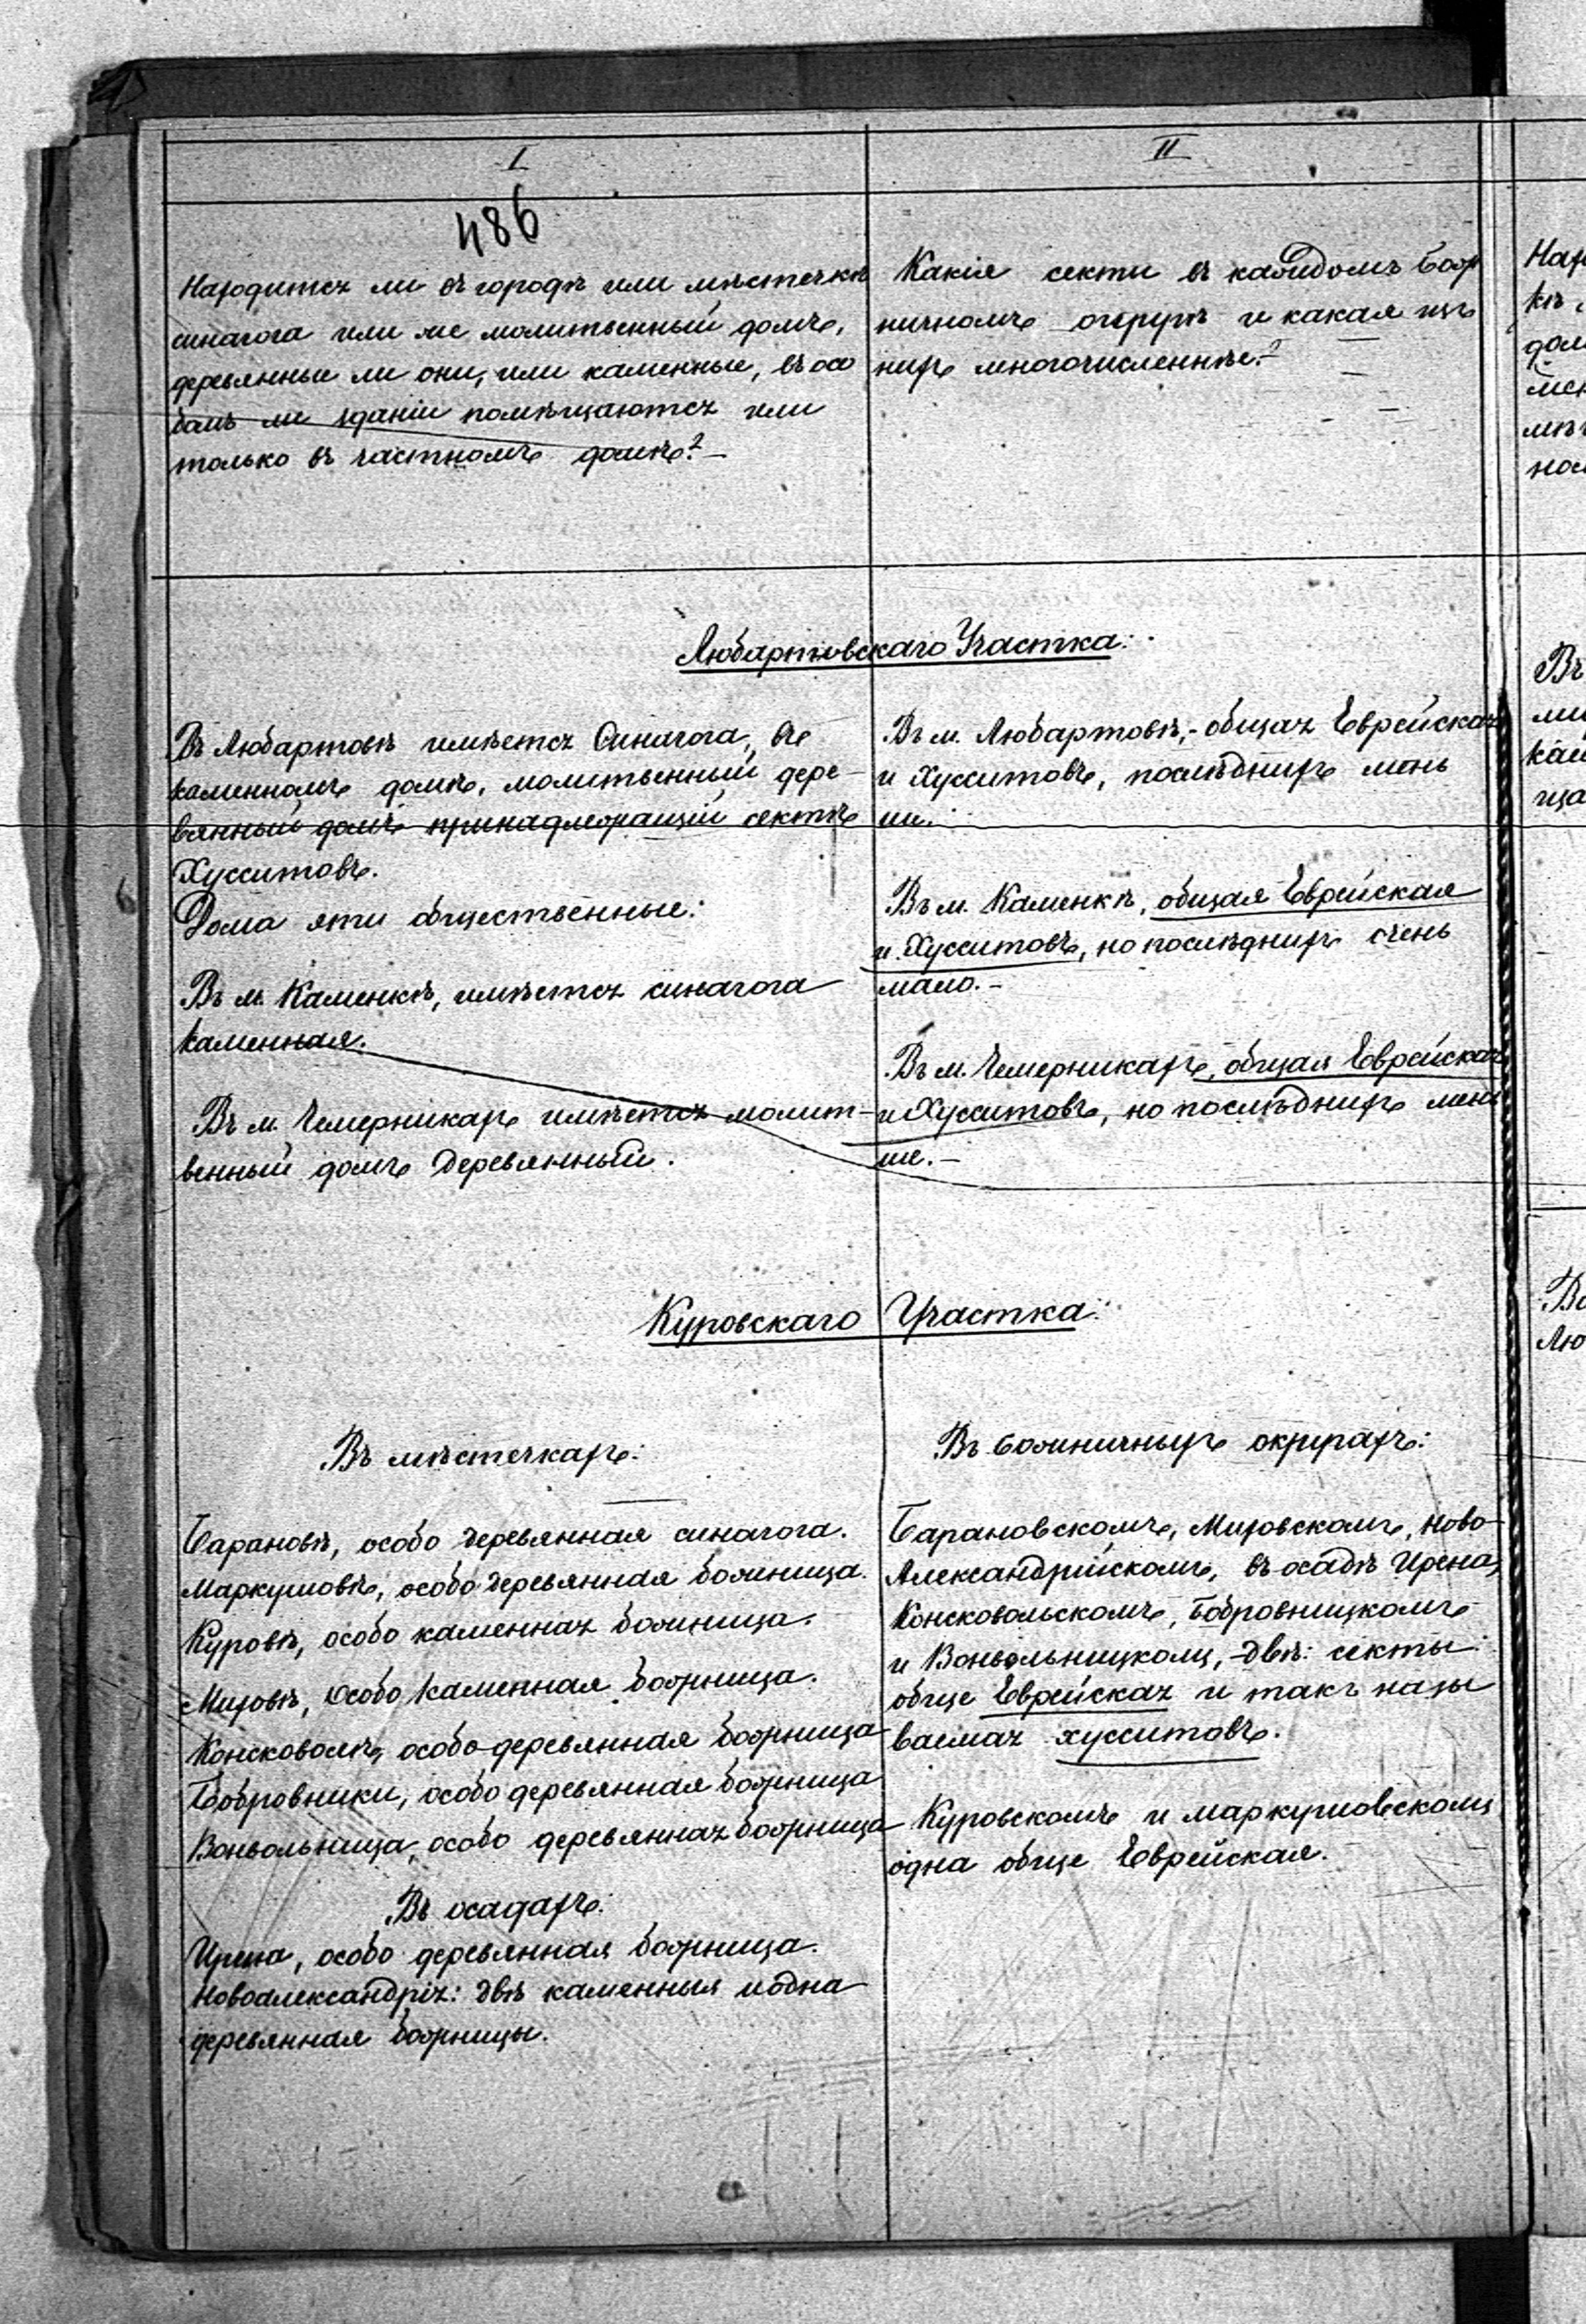 I
II
486
Находится ли въ городѣ или мѣстечкѣ
синагога или же молитвенный домъ,
деревянные ли они, или каменные, въ осо
бомъ ли зданіи помѣщаются или
только въ частномъ домѣ?-
Какія секти въ каждомъ Бож
ничномъ округѣ и какая изъ
нихъ многочисленнѣе?-
Любартовскаго Участка:
Въ Любартовѣ имѣется Синагога, въ
каменномъ домѣ, молитвенный дере-
вянный домъ принадлежащій сектѣ
Хусситовъ.
Дома эти общественные:
Въ м. Каменкѣ, имѣется синагога
каменная.
Въ м. Чемерникахъ имѣется молит-
венный домъ деревянный.
Въ м. Любартовѣ,- общая Еврейская
и Хусситовъ, послѣднихъ мень
ше.
Въ м. Каменкѣ, общая Еврейская
и Хусситовъ, но послѣднихъ очень
мало.-
Въ м. Чемерникахъ, общая Еврейская
и Хусситовъ, но послѣднихъ мень
ше.-
Куровскаго Участка:
Въ мѣстечкахъ:
Барановѣ, особо деревянная синагога.
Маркушовѣ, особо деревянная божница.
Куровѣ, особо каменная божница.
Миховѣ, особо каменная божница.
Консковолѣ, особо деревянная божница
Бобровники, особо деревянная божница
Вонвольница, особо деревянная божница
Въ осадахъ:
Ирена, особо деревянная божница.
Новоалександрія: двѣ каменныя и одна
деревянная божницы.
Въ божничныхъ округахъ:
Барановскомъ, Миховскомъ, Ново-
Александрійскомъ, въ осадѣ Ирена,
Консковольскомъ, Бобровницкомъ
и Вонвольницкомъ,- двѣ: секты:
обще Еврейская и такъ назы
ваемая хусситовъ.
Куровскомъ и Маркушовскомъ
одна обще Еврейская.